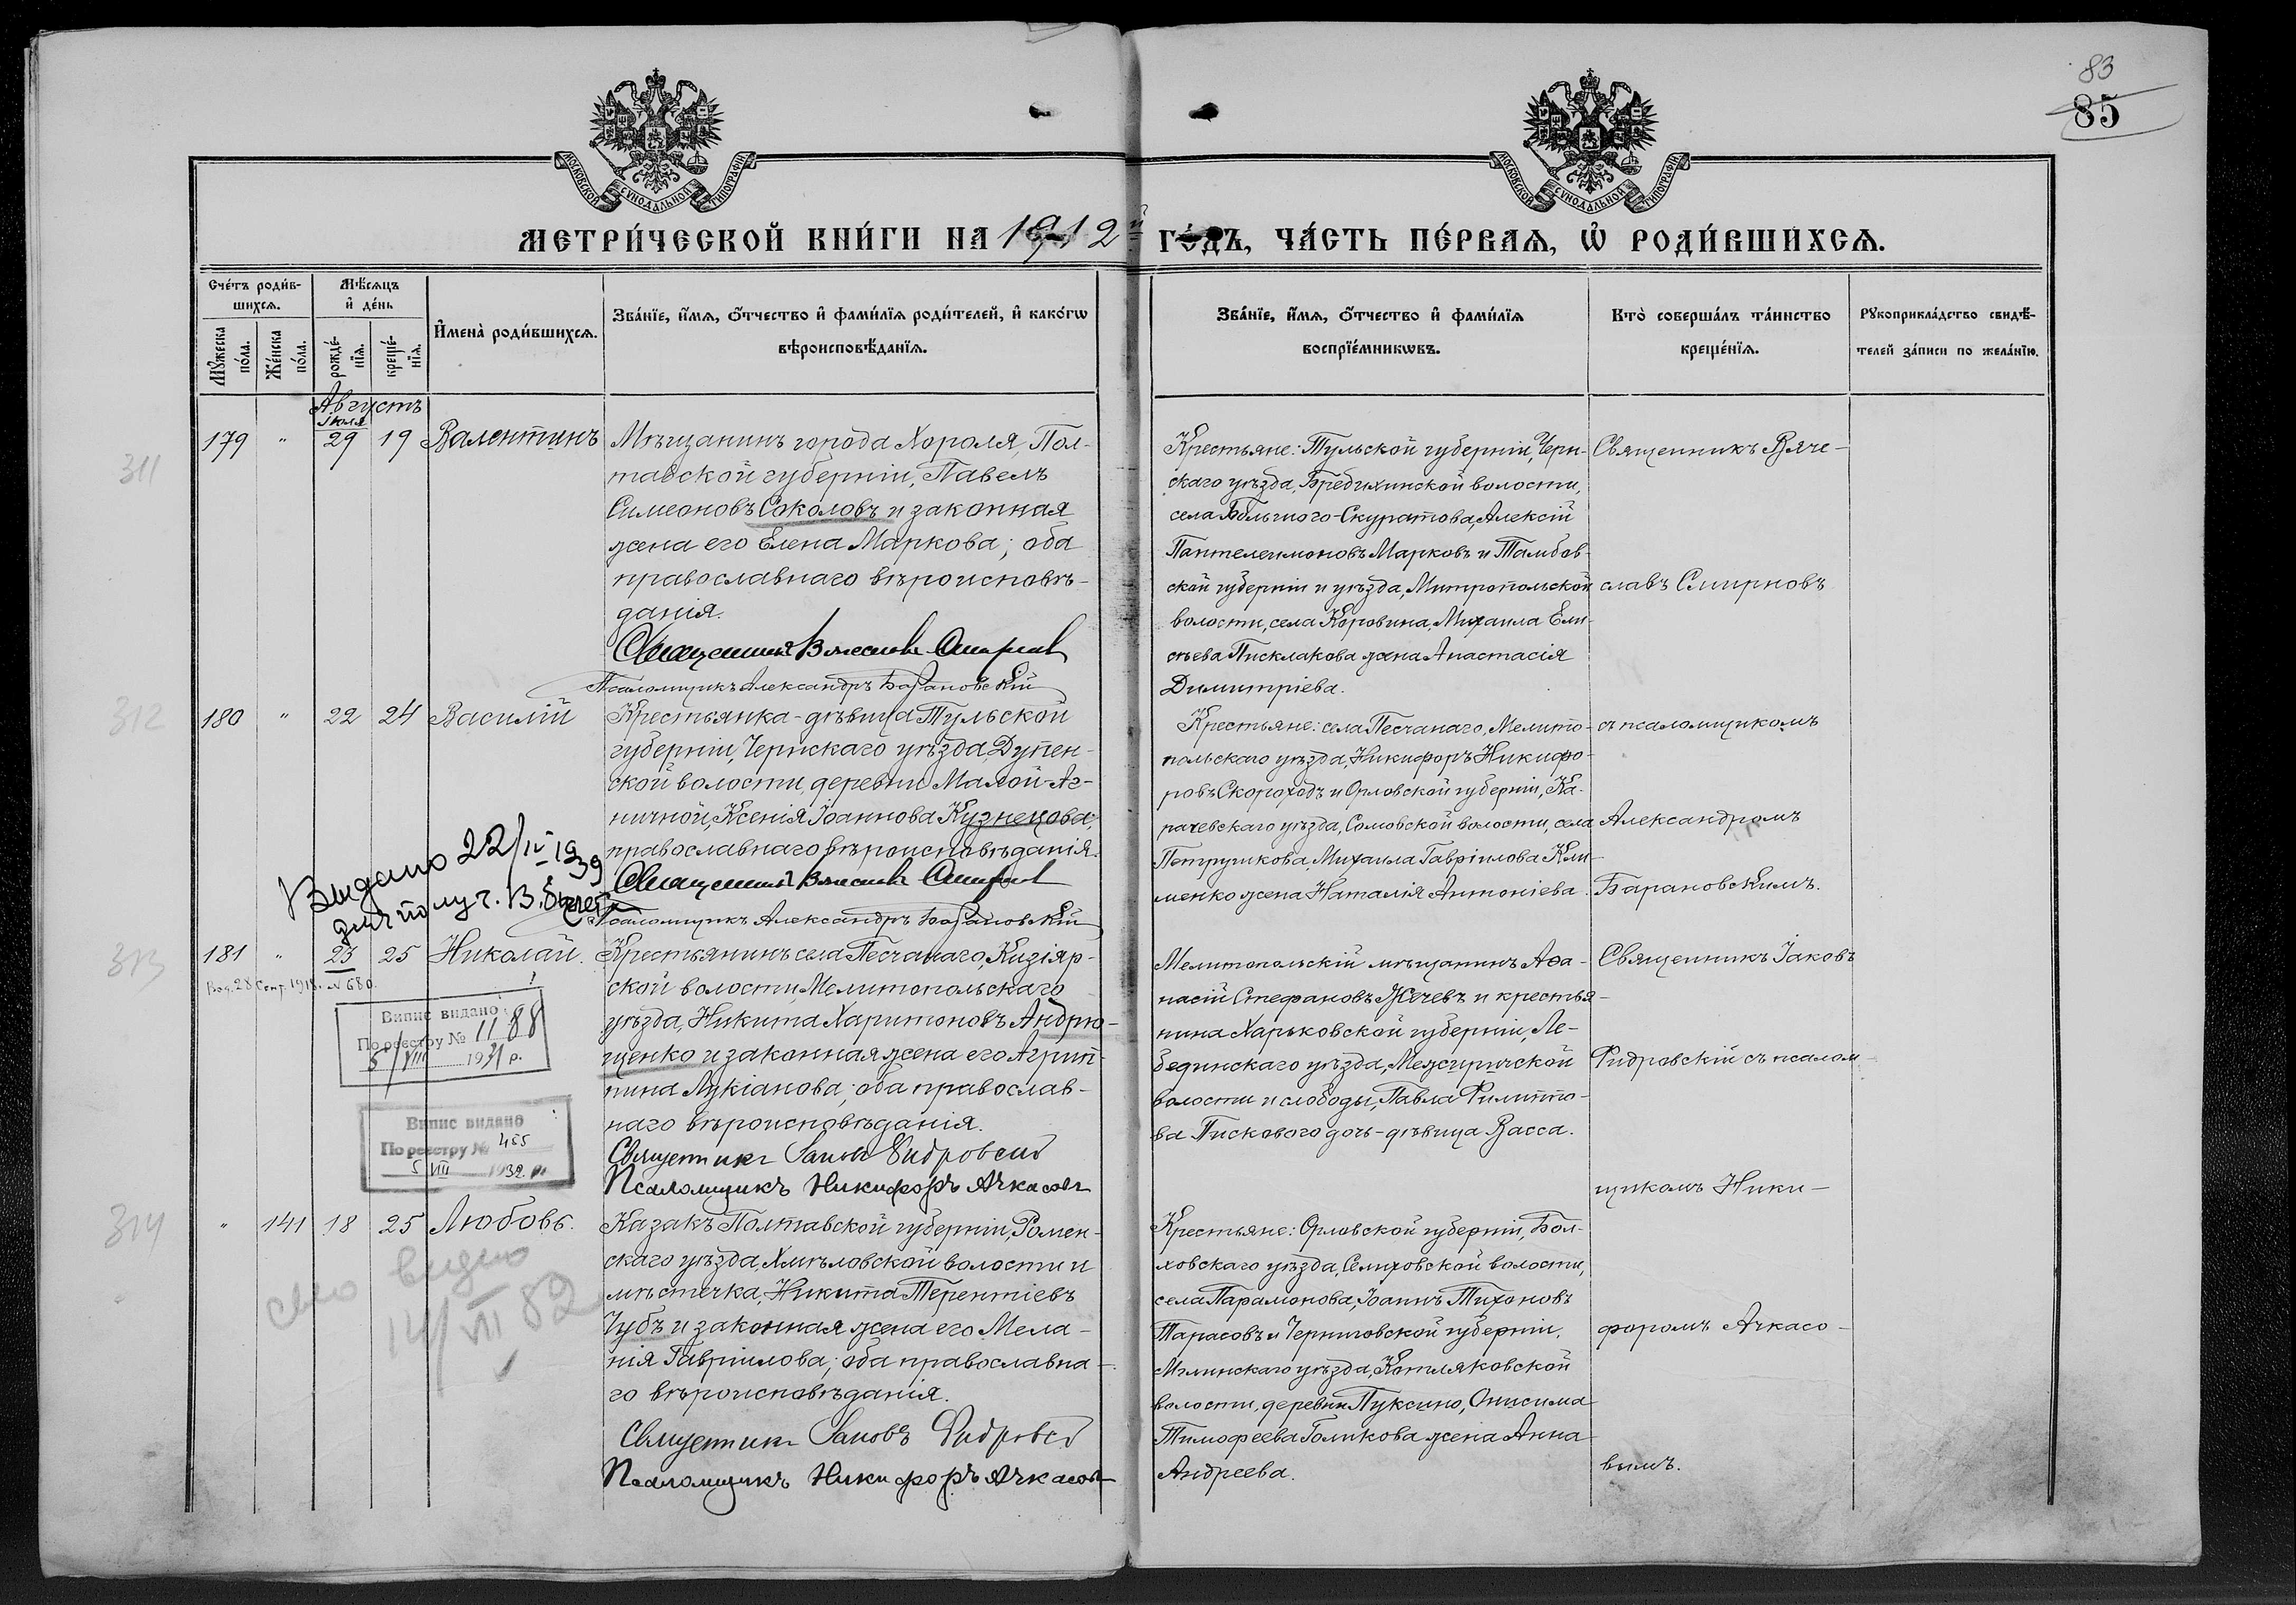 83
85
МОСКОВСКОЙ СѴНОДАЛЬНОЙ ТИПОГРАФІИ
МОСКОВСКОЙ СѴНОДАЛЬНОЙ ТИПОГРАФІИ
МЕТРИ́ЧЕСКОЙ КНИ́ГИ НА 1912й ГО́ДЪ, ЧА́СТЬ ПЕ́РВАѦ, Ѡ҆ РОДИ́ВШИХСѦ.
Сче́тъ роди́в-
шихсѧ.
Мꙋ́жеска
по́ла.
Же́нска
по́ла.
Мѣ́сѧцъ
и҆ де́нь
рожде́-
нїѧ.
креще́-
нїѧ.
И҆мена̀ роди́вшихсѧ.
Зва́нїе, и҆́мѧ, ѻ҆́тчество и҆ фами́лїѧ роди́телей, и҆ како́гѡ
вѣроисповѣ́данїѧ.
Зва́нїе, и҆́мѧ, ѻ҆́тчество и҆ фами́лїѧ
воспрїе́мникѡвъ.
Кто̀ соверша́лъ та́инство
креще́нїѧ.
Рꙋкоприкла́дство свидѣ́-
телей за́писи по жела́нїю.
Августъ
Іюля
311
179 " 29 19 Валентинъ
Мѣщанинъ города Хороля, Пол-
тавской губерніи, Павелъ
Симеоновъ Соколовъ и законная
жена его Елена Маркова; оба
православнаго вѣроисповѣ-
данія.
Священникъ Вячеславъ Смирновъ
Псаломщикъ Александръ Барановскій
Крестьяне: Тульской губерніи, Черн-
скаго уѣзда, Бредихинской волости,
села Большого-Скуратова, Алексій
Пантелеимоновъ Марковъ и Тамбов-
ской губерніи и уѣзда, Митропольской
волости, села Коровина, Михаила Ели-
сѣева Писклакова жена Анастасія
Димитріева.
Священникъ Вяче-
славъ Смирновъ
312
180 " 22 24 Василій
Крестьянка-дѣвица Тульской
губерніи, Чернскаго уѣзда, Дупен-
ской волости, деревни Малой-Аг-
ничной, Ксенія Іоаннова Кузнецова,
православнаго вѣроисповѣданія.
Священникъ Вячеславъ Смирновъ
Псаломщикъ Александръ Барановскій
Крестьяне: села Песчанаго, Мелито-
польскаго уѣзда, Никифоръ Никифо-
ровъ Скороходъ и Орловской губерніи, Ка-
рачевскаго уѣзда, Сомовской волости, села
Петрушкова, Михаила Гавріилова Кли-
менко жена Наталія Антоніева.
съ псаломщикомъ
Александромъ
Барановскимъ.
Видано 22/IV 1939
313
181 " 23 25 Николай.
28 Сент. 1918. № 680.
Випис видано
По реєстру № 1188
5/VIII 1931 р.
Випис видано
По реєстру № 455
5 VIII 1932 р.
Крестьянинъ села Песчанаго, Кизіяр-
ской волости, Мелитопольскаго
уѣзда, Никита Харитоновъ Андрю-
щенко и законная жена его Агрип-
пина Лукіанова; оба православ-
наго вѣроисповѣданія.
Священникъ Іаковъ Фидровскій
Псаломщикъ Никифоръ Ачкасовъ
Мелитопольскій мѣщанинъ Аѳа-
насій Стефановъ Жечевъ и крестья-
нина Харьковской губерніи, Ле-
бединскаго уѣзда, Межиричской
волости и слободы, Павла Филиппо-
ва Пискового дочь-дѣвица Васса.
Священникъ Іаковъ
Фидровскій съ псалом-
щикомъ Ники-
314
" 141 18 25 Любовь.
14/VII 82
Казакъ Полтавской губерніи, Ромен-
скаго уѣзда, Хмѣловской волости и
мѣстечка, Никита Терентіевъ
Чубъ и законная жена его Мела-
нія Гавріилова; оба православна-
го вѣроисповѣданія.
Священникъ Іаковъ Фидровскій
Псаломщикъ Никифоръ Ачкасовъ
Крестьяне: Орловской губерніи, Бол-
ховскаго уѣзда, Селиховской волости,
села Парамонова, Іоаннъ Тихоновъ
Тарасовъ и Черниговской губерніи,
Мглинскаго уѣзда, Котляковской
волости, деревни Пуксино, Онисима
Тимофеева Голикова жена Анна
Андреева.
форомъ Ачкасо-
вымъ.